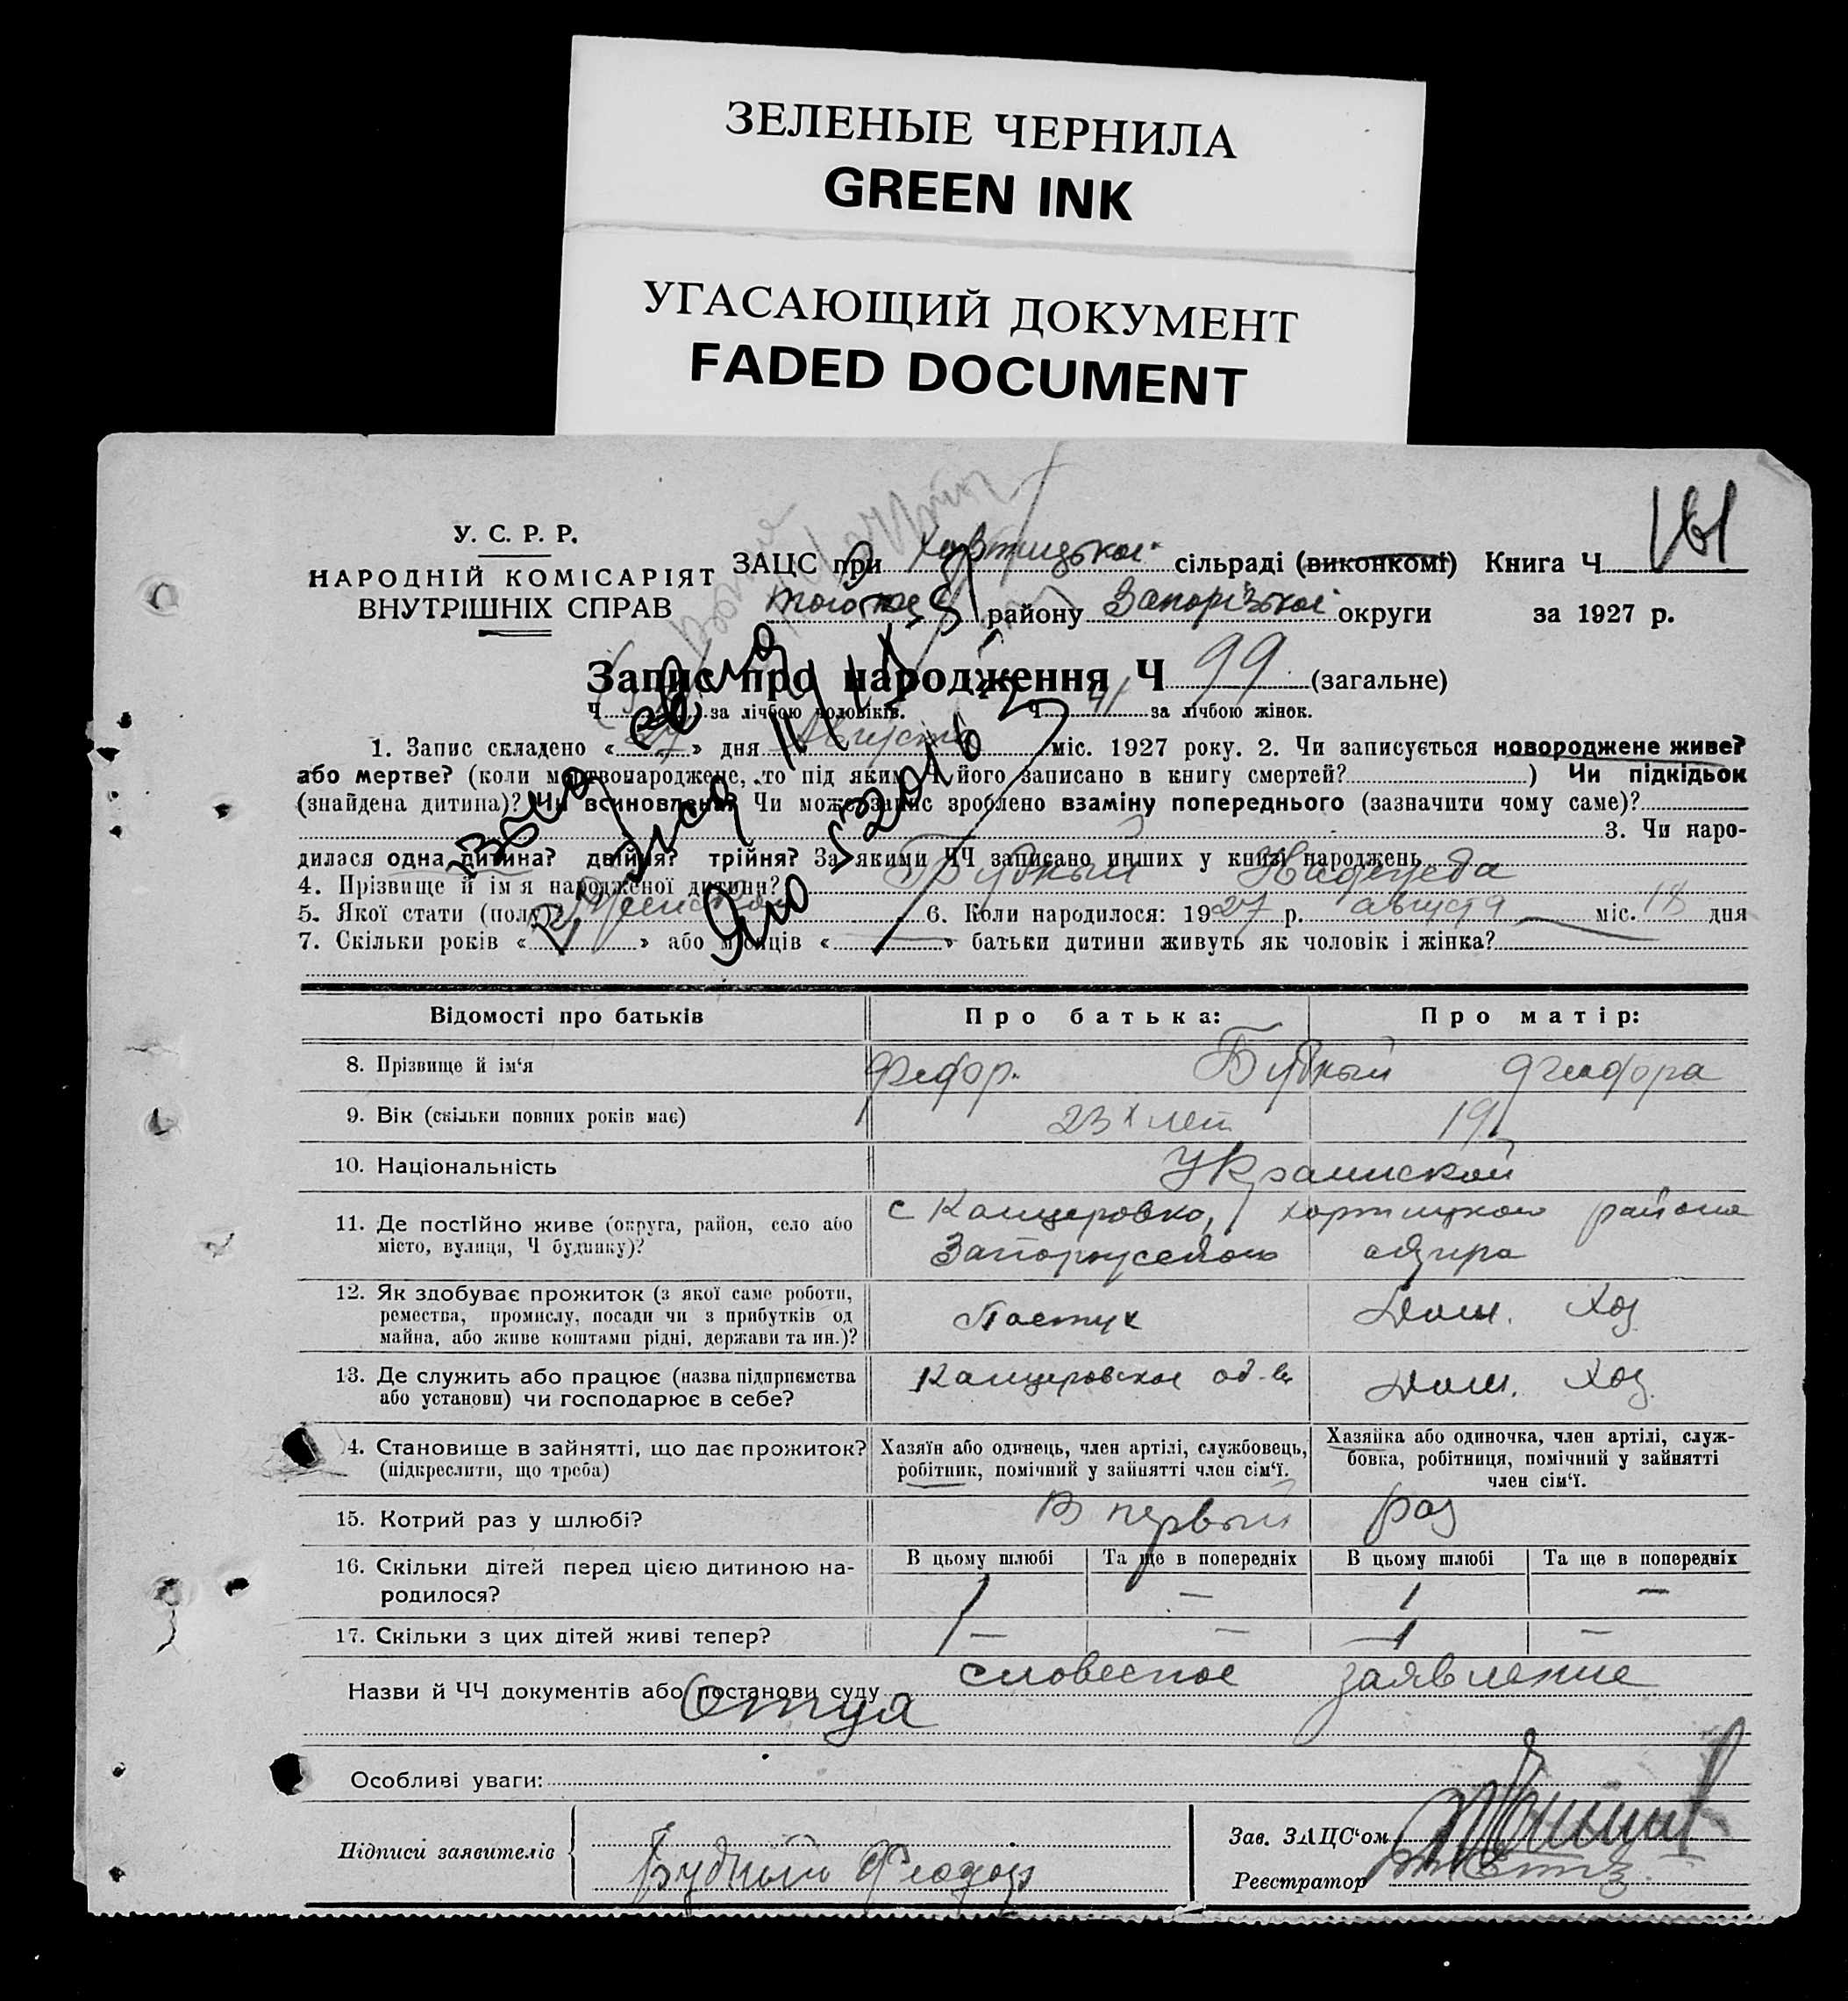 ЗЕЛЕНЫЕ ЧЕРНИЛА
GREEN INK
УГАСАЮЩИЙ ДОКУМЕНТ
FADED DOCUMENT
У. С. Р. Р.
НАРОДНІЙ КОМІСАРІЯТ
ВНУТРІШНІХ СПРАВ
ЗАЦС при Хортицької сільраді (виконкомі) Книга Ч
того ж району Запорізької округи за 1927 р.
Запис про народження Ч 99 (загальне)
Ч за лічбою чоловіків. Ч 41 за лічбою жінок.
1. Запис складено « 27 » дня Августа міс. 1927 року. 2. Чи записується новороджене живе?
або мертве? (коли мертвонароджене, то під яким Ч його записано в книгу смертей? ) Чи підкідьок
(знайдена дитина)? Чи всиновлена? Чи може запис зроблено взаміну попереднього (зазначити чому саме)?
3. Чи наро-
дилася одна дитина? двійня? трійня? За якими ЧЧ записано инших у книзі народжень
4. Прізвище й ім'я народженої дитини? Будный Надежда
5. Якої стати (полу)? 6. Коли народилося: 1927 р. августа міс. 18 дня
7. Скільки років « » або місяців « — » батьки дитини живуть як чоловік і жінка?
Відомості про батьків Про батька: Про матір:
8. Прізвище й ім'я Федор. Будный
9. Вік (скільки повних років має) 23 х лет 19
10. Національність Украинской
11. Де постійно живе (округа, район, село або
місто, вулиця, Ч будинку)?
с Канцеровко, хортицкого района
Запорожского округа
12. Як здобуває прожиток (з якої саме роботи,
ремества, промислу, посади чи з прибутків од
майна, або живе коштами рідні, держави та ин.)?
Пастух Дом. Хоз
13. Де служить або працює (назва підприємства
або установи) чи господарює в себе?
Канцеровское об-во Дом. Хоз.
4. Становище в зайнятті, що дає прожиток?
(підкреслити, що треба)
Хазяїн або одинець, член артілі, службовець,
робітник, помічний у зайнятті член сім'ї.
Хазяйка або одиночка, член артілі, служ-
бовка, робітниця, помічний у зайнятті
член сім'ї.
15. Котрий раз у шлюбі? В первый раз
16. Скільки дітей перед цією дитиною на-
родилося?
В цьому шлюбі Та ще в попередніх В цьому шлюбі Та ще в попередніх
1 — 1 —
17. Скільки з цих дітей живі тепер? 1 — 1 —
Назви й ЧЧ документів або постанови суду словесное заявление
Отца
Особливі уваги:
Підписи заявителів Будний Феодор
Зав. ЗАЦС'ом
Реєстратор